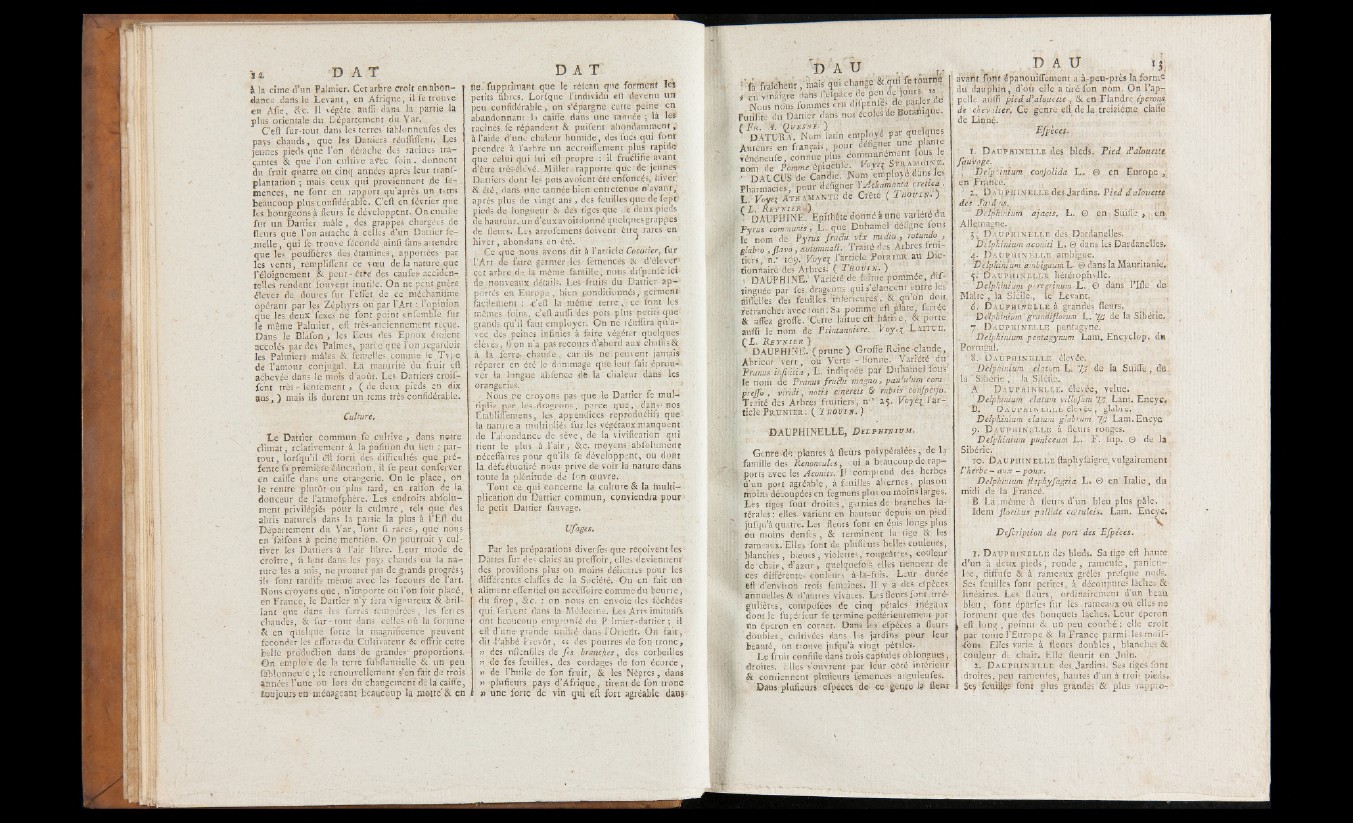 12 D A T
à la cime d'un Palmier. Cet arbre croît en abon-
dance dans le Levant, en Afrique, il se trouve
en Asie, &c. Il végète aussi dans la partie la
plus orientale du Département du Var.
C'est sur-tout dans les terres sablonneuses des
pays chauds, que les Dattiers réussissent. Les
jeunes pieds que l'on détache des racines tra-
çantes & que l'on cultive avec soin, donnent
du fruit quatre ou cinq années après leur trans-
plantation ; mais ceux qui proviennent de se-
mences, ne sont en rapport qu'après un tems
beaucoup plus considérable. C'est en février que
les bourgeons à fleurs se développent. On cueille
sur un Dattier mâle, des grappes chargées de
fleurs que l'on attache à celles d'un Dattier fe-
melle, qui se trouve fécondé ainsi sans attendre
que les poussières des étamines, apportées par
les vents, remplissent ce vœu de la nature que
l'éloignement & peut-être des causes acciden-
telles rendent souvent inutile. On ne peut guère
élever de doutes sur l'effet de ce méchanisme
opérant par les Zéphyrs ou par l'Art : l'opinion
que les deux sexes ne sont point ensemble sur
le même Palmier, est très-anciennement reçue.
Dans le Blason, les Ecus des Epoux étoient
accolés par des Palmes, parce que l'on regardoit
les Palmiers mâles & femelles comme le Type
de l'amour conjugal. La maturité du fruit est
achevée dans le mois d'août. Les Dattiers crois-
sent très-lentement, ( de deux pieds en dix
ans, ) mais ils durent un tems très considérable.
Culture.
Le Dattier commun se cultive, dans notre
climat, relativement à la position du lieu : par-
tout, lorsqu'il est sorti des difficultés que pré-
sente sa première éducation, il se peut conserver
en caisse dans une orangerie. On le place, on
le rentre plutôt ou plus tard, en raison de la
douceur de l'atmosphère. Les endroits absolu-
ment privilégiés pour la culture, tels que des
abris naturels dans la partie la plus à l'Est du
Département du Var, sont si rares, que nous
en faisons à peine mention. On pourroit y cul-
tiver les Dattiers à l'air libre. Leur mode de
croître, si lent dans les pays chauds où la na-
ture les a mis, ne promet pas de grands progrès ;
ils sont tardifs même avec les secours de l'art.
Nous croyons que, n'importe où l'on soit placé,
en France, le Dattier n'y sera vigoureux & bril-
lant que dans les serres tempérées, les serres
chaudes, & sur-tout dans celles où la fortune
& en quelque sorte la magnificence peuvent
seconder les efforts du Cultivateur & offrir cette
belle production dans de grandes proportions.
On emploie de la terre substantielle & un peu
sablonneuse ; le renouvellement s'en fait de trois
années l'une ou lors du changement de la caisse,
toujours en ménageant beaucoup la motte & en
D A T
ne supprimant que le réseau que forment les
petits fibres. Lorsque l'individu est devenu un
peu considérable, on s'épargne cette peine en
abandonnant la caisse dans une tannée ; là les
racines se répandent & puisent abondamment,
à l'aide d'une chaleur humide, des sucs qui font
prendre à l'arbre un accroissement plus rapide
que celui qui lui est propre : il fructifie avant
d'être très-élevé. Miller rapporte que de jeunes
Dattiers dont les pots avoient été enfoncés, hiver
& été, dans une tannée bien entretenue n'ayant,
après plus de vingt ans, des feuilles que de sept
pieds de longueur & des tiges que de deux pieds
de hauteur, un d'eux avoit donné quelques grappes
de fleurs. Les arrosemens doivent être rares en
hiver, abondans en été.
Ce que nous avons dit à l'article Cocotier, sur
l'Art de faire germer les semences & d'élever
cet arbre de la même famille, nous dispense ici
de nouveaux détails. Les fruits du Dattier ap-
portés en Europe, bien conditionnés, germent
facilement : c'est la même terre, ce sont les
mêmes soins, c'est aussi des pots plus petits que
grands qu'il faut employer. On ne réussira qu'a-
vec des peines infinies à faire végéter quelques
élèves, si on n'a pas recours d'abord aux chassis &
à la serre chaude, car ils ne peuvent jamais
réparer en été le dommage que leur fait éprou-
ver la longue absence de la chaleur dans les
orangeries.
Nous ne croyons pas que le Dattier se mul-
tiplie par les drageons, parce que, dans nos
Etablissemens, les appendices reproductifs que
la nature a multipliés sur les végétaux manquent
de l'abondance de sève, de la vivification qui
tient le plus à l'air, &c. moyens absolument
nécessaires pour qu'ils se développent, ou dont
la défectuosité nous prive de voir la nature dans
toute la plénitude de son œuvre.
Tout ce qui concerne la culture & la multi-
plication du Dattier commun, conviendra pour
le petit Dattier sauvage.
Usages.
Par les préparations diverses que reçoivent les
Dattes sur des claies au pressoir, elles deviennent
des provisions plus ou moins délicates pour les
différentes classes de la Société. On en fait un
aliment essentiel ou accessoire comme du beurre,
du sirop, &c. : on nous en envoie des séchées
qui servent dans la Médecine. Les Arts imitatifs
ont beaucoup emprunté du Palmier-dattier ; il
est d'une grande utilité dans l'Orient. On fait,
dit l'abbé Prevôt, « des poutres de son tronc,
» des ustensiles de ses branches, des corbeilles
» de ses feuilles, des cordages de son écorce,
» de l'huile de son fruit, & les Nègres, dans
» plusieurs pays d'Afrique, tirent de son tronc
» une sorte de vin qui est fort agréable dans
D A U
sa fraîcheur, mais qui change & qui se tourne
en vinaigre dans l'espace de peu de jours. »
Nous nous sommes cru dispensés de parler de
l'utilité du Dattier dans nos écoles de Botanique.
( Fn. A. QUESNÉ. )
DATURA. Nom latin employé par quelques
Auteurs en français, pour désigner une plante
vénéneuse, connue plus communément sous le
nom de Pomme épineuse. Voyez STRAMOINE.
DAUCUS de Candie. Nom employé dans les
Pharmacies, pour désigner l'Athamanta cretica.
L. Voyez ATHAMANTE de Crète ( THOUIN. )
( L. REYNIER )
DAUPHINE. Epithète donné à une variété du
Pyrus communis, L. que Duhamel désigne sous
le nom de Pyrus fructu vix medio, rotundo,
glabro, flavo, autumnali. Traité des Arbres frui-
tiers, n.° 109. Voyez l'article POIRIER au Dic-
tionnaire des Arbres. ( THOUIN. )
DAUPHINE. Variété de laitue pommée, dis-
tinguée par ses drageons qui s'élancent entre les
aisselles des feuilles inférieures, & qu'on doit
retrancher avec soin. Sa pomme est plate, serrée
& assez grosse. Cette laitue est hâtive, & porte
aussi le nom de Printannière. Voyez LAITUE.
( L. REYNIER )
DAUPHINE. ( prune ) Grosse Reine-claude,
Abricot vert, ou Verte-bonne. Variété du
Prunus insititia, L. indiquée par Duhamel sous
le nom de Prunus fructu magno, paululum com-
presso, viridi, notis cinereis & rubris consperso.
Traité des Arbres fruitiers, n.° 25. Voyez l'ar-
ticle PRUNIER. ( THOUIN. )
DAUPHINELLE, DELPHINIUM.
Genre de plantes à fleurs polypétalées, de la
famille des Renoncules, qui a beaucoup de rap-
ports avec les Aconits. Il comprend des herbes
d'un port agréable, à feuilles alternes, plus ou
moins découpées en segmens plus ou moins larges.
Les tiges sont droites, garnies de branches la-
térales : elles varient en hauteur depuis un pied
jusqu'à quatre. Les fleurs sont en épis longs plus
ou moins denses, & terminent la tige & les
rameaux. Elles sont de plusieurs belles couleurs,
blanches, bleues, violettes, rougeâtres, couleur
de chair, d'azur, quelquefois elles tiennent de
ces différentes couleurs à-la-fois. Leur durée
est d'environ trois semaines. Il y a des espèces
annuelles & d'autres vivaces. Les fleurs sont irré-
gulières, composées de cinq pétales inégaux
dont le supérieur se termine postérieurement par
un éperon en cornet. Dans les espèces à fleurs
doubles, cultivées dans les jardins pour leur
beauté, on trouve jusqu'à vingt pétales.
Le fruit consiste dans trois capsules oblongues,
droites. Elles s'ouvrent par leur côté intérieur
& contiennent plusieurs semences anguleuses.
Dans plusieurs espèces de ce genre la fleur
D A U 13
avant son épanouissement a à-peu-près la forme
du dauphin, d'où elle a tiré son nom. On l'ap-
pelle aussi pied d'alouette, & en Flandre éperons
de chevalier. Ce genre est de la treizième classe
de Linné.
Espèces.
1. DAUPHINELLE des bleds. Pied d'alouette
sauvage.
Delphinium consolida L. ☉ en Europe,
en France.
2. DAUPHINELLE des Jardins. Pied d'alouette
des Jardins.
Delphinium ajacis, L. ☉ en Suisse, en
Allemagne.
3. DAUPHINELLE des Dardanelles.
Delphinium aconiti L. ☉ dans les Dardanelles.
4. DAUPHINELLE ambiguë.
Delphinium ambiguum L. ☉ dans la Mauritanie.
5. DAUPHINELLE hétérophylle.
Delphinium peregrinum L. ☉ dans l'Isle de
Malte, la Sicile, le Levant.
6. DAUPHINELLE à grandes fleurs.
Delphinium grandiflorum L. ♃ de la Sibérie.
7. DAUPHINELLE pentagyne.
Delphinium pentagynum Lam. Encyclop. du
Portugal.
8. DAUPHINELLE élevée.
Delphinium elatum L. ♃ de la Suisse, de
la Sibérie, la Silésie.
A DAUPHINELLE élevée, velue.
Delphinium elatum villosum ♃ Lam. Encyc.
B. DAUPHINELLE élevée, glabre.
Delphinium elatum glabrum ♃ Lam. Encyc.
9. DAUPHINELLE à fleurs rouges.
Delphinium puniceum L. F. sup. ☉ de la
Sibérie.
10. DAUPHINELLE staphysaigre, vulgairement
l'herbe-aux-poux.
Delphinium staphysagria L. ☉ en Italie, du
midi de la France.
B La même à fleurs d'un bleu plus pâle.
Idem floribus pallide cœruleis. Lam. Encyc.
Description du port des Espèces.
1. DAUPHINELLE des bleds. Sa tige est haute
d'un à deux pieds, ronde, rameuse, panicu-
lée, diffuse & à rameaux grêles presque nuds.
Ses feuilles sont petites, à découpures lâches &
linéaires. Les fleurs, ordinairement d'un beau
bleu, sont éparses sur les rameaux où elles ne
forment que des bouquets lâches. Leur éperon
est long, pointu & un peu courbé : elle croît
par toute l'Europe & la France parmi les mois-
sons. Elles varie à fleurs doubles, blanches &
couleur de chair. Elle fleurit en Juin.
2. DAUPHINELLE des Jardins. Ses tiges sont
droites, peu rameuses, hautes d'un à trois pieds.
Ses feuilles sont plus grandes & plus rappro-